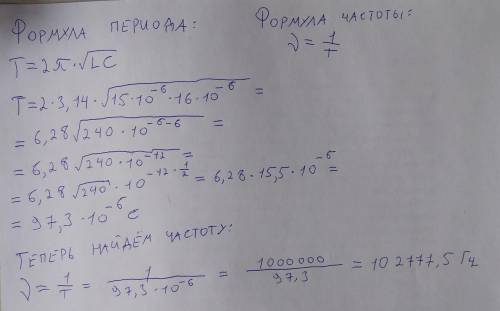 Формула периода:
Формула частоты:
T = 2π · √LC
ν = 1/T
T = 2 · 3,14 · √15 · 10⁻⁶ · 16 · 10⁻⁶ =
= 6,28 √240 · 10⁻⁶⁻⁶ =
= 6,28 √240 · 10⁻¹² =
= 6,28 √240 · 10^(-12 · 1/2) = 6,28 · 15,5 · 10⁻⁶ =
= 97,3 · 10⁻⁶ с
Теперь найдём частоту:
ν = 1/T = 1/97,3 · 10⁻⁶ = 1000000/97,3 = 102777,5 Гц